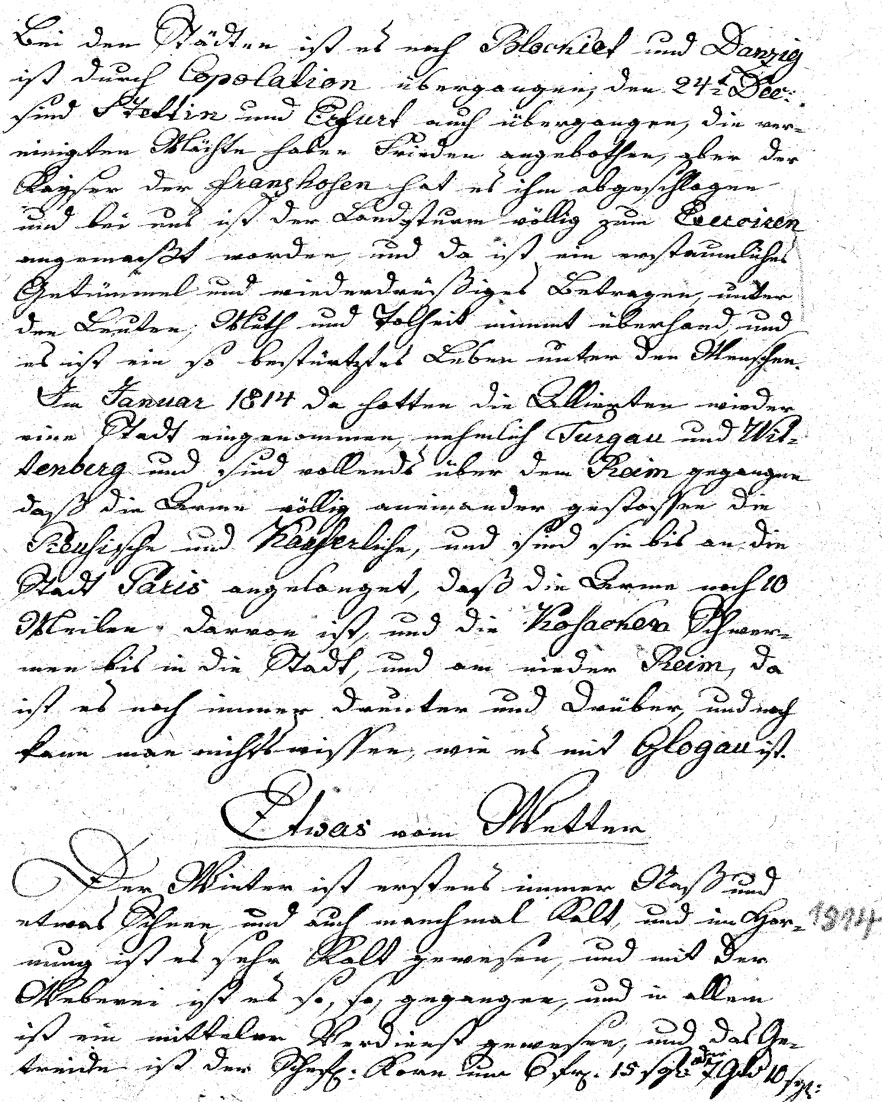 Bei den Städten ist es noch Blockiet und Danzig
ist durch Copolation übergangen, den 24t Dec:
sind Stettin und Erfurt auch übergangen, die ver-
einigten Mächte haben Frieden angebothen, aber der
Kayser der franzhosen hat es ihm abgeschlagen
und bei uns ist der Landsturm völlig zum Excoiren
angemaßt worden, und da ist ein erstaunliches
Getümmel und wiederdrüßiges Betragen, unter
den Leuten, Muth und Tolheit nimmt überhand, und
es ist ein so bestürtztes Leben unter den Menschen.
Im Januar 1814 da hatten die Allierten wieder
eine Stadt eingenommen, nehmlich Turgau und Wit-
tenberg und sind vollends über den Reim gegangen
daß die Arme völlig aneinander gestossen die
Preusische und Kayserliche, und sind sie bis an die
Stadt Paris angelanget, daß die Arme noch 10
Meilen darvon ist, und die Kosacken Schwer-
men bis in die Stadt, und am nieder Reim, da
ist es noch immer drunter und drüber, und noch
kann man nichts wissen, wie es mit Glogau ist.
Etwas vom Wetter
Der Winter ist erstens immer Naß und
etwas Schnee, und auch manchmal Kalt, und im Hor- 1814
nung ist es sehr Kalt gewesen, und mit der
Weberei ist es so, so, gegangen, und in allem
ist ein mitteler Verdienst gewesen, und das Ge-
treide ist der Schefl: Korn um 6 fr. 15 sgr oder 7 10 sgr: